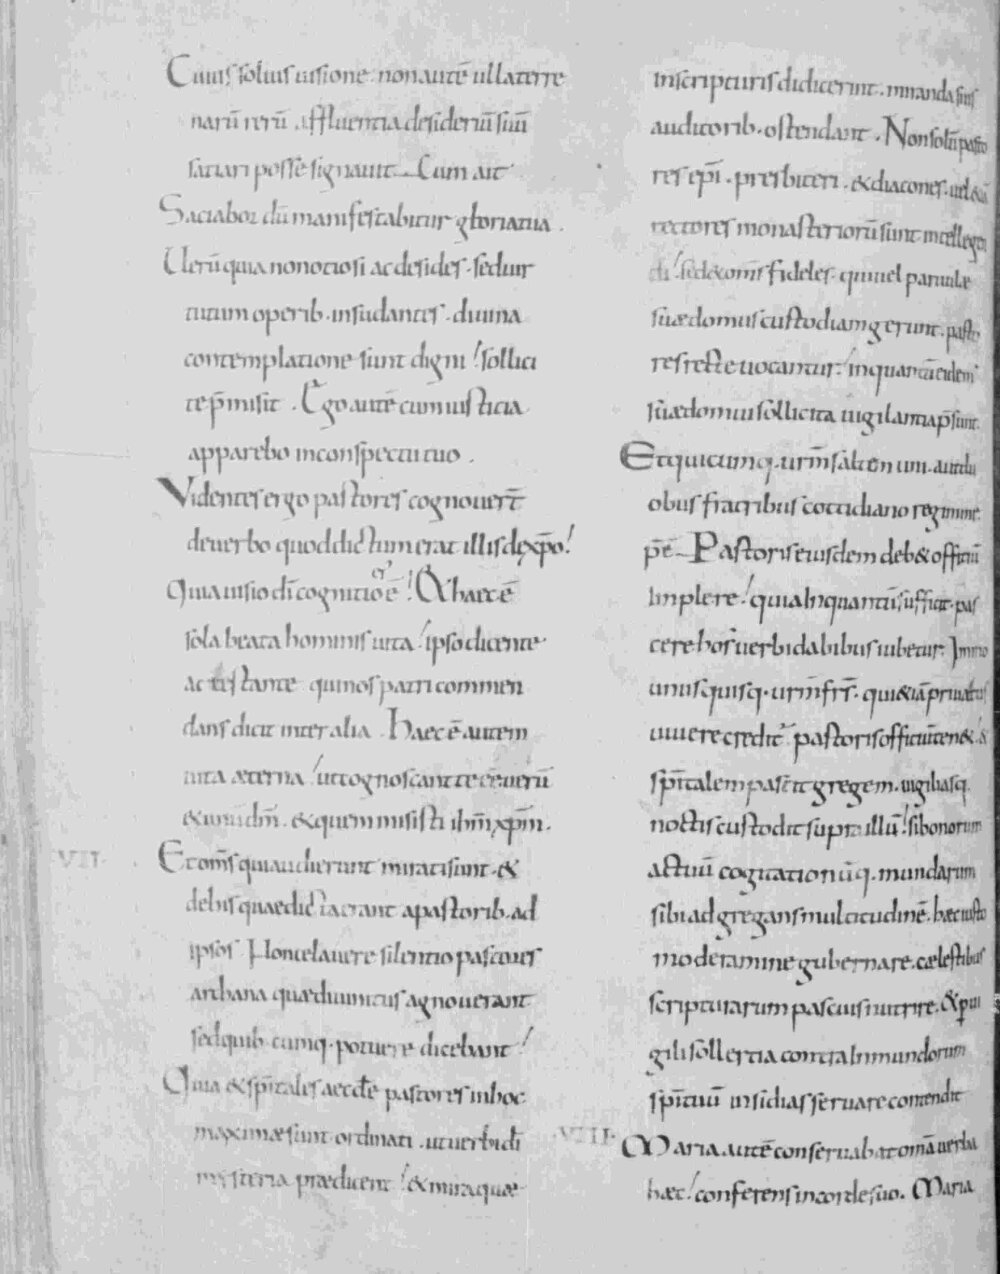 Cuius solius uisione non autē ulla terre
narū rerū affluentia desideriū suū
satiari posse signauit. Cum ait
Saciabor dū manifestabitur gloria tua.
Uerū quia non otiosi ac desides. sed uir
tutum operib. insudantes. diuina
contemplatione sunt digni! sollici
te p̄misit. Ego autē cum iusticia
apparebo in conspectu tuo.
Videntes ergo pastores cognouer̄t
de uerbo quod dictum erat illis de xp̄o!
Quia uisio dī cognitio ē! & haec ē
sola beata hominis uita! ipso dicente
ac testante qui nos patri commen
dans dicit inter alia. Haec ē autem
uita æterna! ut cognoscant te ēē uerū
& unū dm̄. & quem misisti ihm̄ xp̄m.
VII. Et om̄s qui audierunt mirati sunt. &
de his quae dicta erant a pastorib. ad
ipsos. Non celauere silentio pastores
archana quæ diuinitus agnouerant
sed quib. cumq. potuere dicebant!
Quia & sp̄itales aecclē pastores in hoc
maximæ sunt ordinati. ut uerbi dī
mysteria prædicent! & mira quæ
in scripturis didicerint. miranda suis
auditorib. ostendant. Non solū pasto
res epī. presbiteri. & diacones. uel &iā
rectores monasteriorū sunt intellegen
di! sed & om̄s fideles. qui uel paruulæ
suæ domus custodiam gerunt. pasto
res recte uocantur! in quantū eidem
suæ domui sollicita uigilantia p̄sunt.
Et quicumq. ur̄m saltem uni. aut du
obus fratribus cottidiano regimine
p̄ē. Pastoris eiusdem deb& officiū
Implere! quia Inquantū sufficit. pas
cere hos uerbi dabibus iubetur. Immo
unusquisq. ur̄m fr̄s. qui &iā priuatus
uiuere credit̄ pastoris officiū ten&. &
sp̄italem pascit gregem. uigiliasq.
noctis custodit supra illū! si bonorum
actuū cogitationūq. mundarum
sibi adgregans multitudinē. hæc iusto
moderamine gubernare. cælestibus
scripturarum pascuis nutrire. & perui
gili sollertia contra Inmundorum
sp̄ituū insidias seruare contendit
VIII. Maria autē conseruabat omīa uerba
hæc! conferens in corde suo. Maria